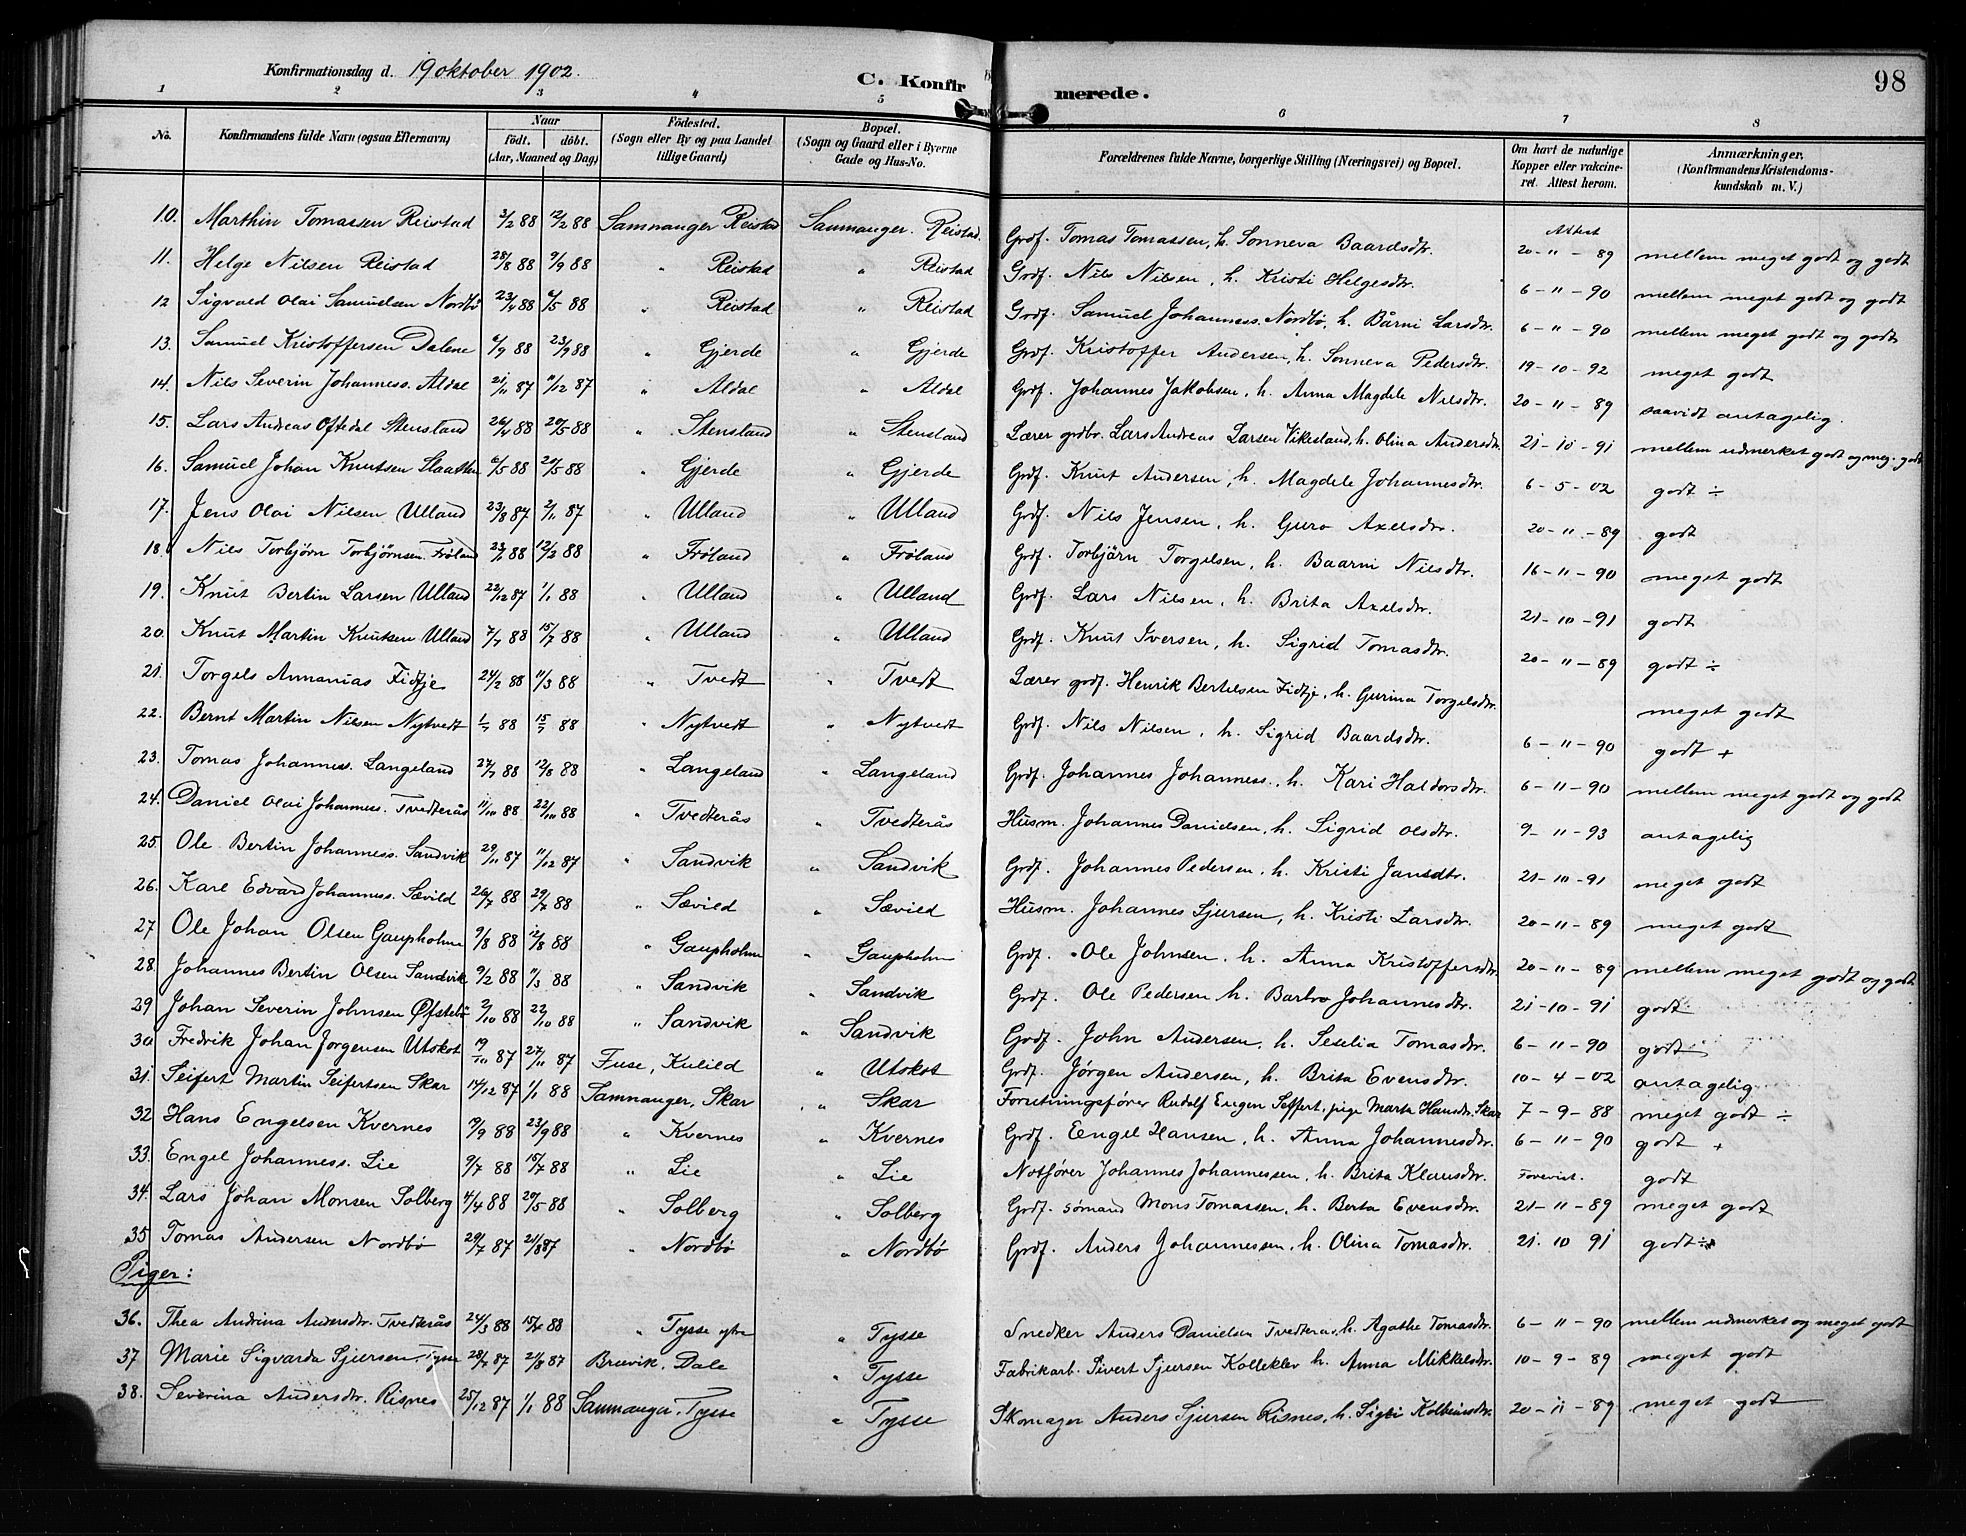 Konfirmationsdag d. 19 oktober 1902. C. Konfirmerede. 98
1 2 3 4 5 6 7 8
No. Konfirmandens fulde Navn (ogsaa Efternavn) Naar födt. döbt. (Aar, Maaned og Dag) Födested. (Sogn eller By og paa Landet tillige Gaard) Bopæl. (Sogn og Gaard eller i Byerne Gade og Hus-No. Forældrenes fulde Navne, borgerlige Stilling (Næringsvei) og Bopæl. Om havt de naturlige Kopper eller vakcineret. Attest herom. Anmærkninger. (Konfirmandens Kristendomskundskab m. V.)
10. Marthin Tomassen Reistad 3/2 88 12/2 88 Samnanger Reistad Samnanger. Reistad. Grdf. Tomas Tomassen, h. Sonneva Baardsdtr. Attest 20-11-89 mellem meget godt og godt
11. Helge Nilsen Reistad 28/8 88 9/9 88 " Reistad " Reistad Grdf. Nils Nilsen, h. Kristi Helgesdtr. 6-11-90 mellem meget godt og godt
12 Sigvald Olai Samuelsen Nordbö 23/4 88 6/5 88 " Reistad " Reistad Grdf. Samuel Johanness. Nordbö, h. Bårni Larsdtr. 6-11-90 mellem meget godt og godt
13. Samuel Kristoffersen Dalene 6/9 88 23/9 88 " Gjerde " Gjerde Grdf. Kristoffer Andersen, h. Sonneva Pedersdtr. 19-10-92 meget godt
14. Nils Severin Johanness. Aldal 21/11 87 11/12 87 " Aldal " Aldal Grdf. Johannes Jakobsen, h. Anna Magdele Nilsdtr. 20-11-89 saavidt antagelig.
15. Lars Andreas Oftedal Stensland 26/4 88 20/5 88 " Stensland " Stensland Lærer grdbr. Lars Andreas Larsen Vikesland, h. Olina Andersdtr. 21-10-91 mellem udmerket godt og meg. godt
16. Samuel Johan Knutsen Slaatten 6/5 88 20/5 88 " Gjerde " Gjerde Grdf. Knut Andersen, h. Magdele Johannesdtr. 6-5-02 godt ÷
17. Jens Olai Nilsen Ulland 23/8 87 2/11 87 " Ulland " Ulland Grdf. Nils Jensen, h. Guro Axelsdtr. 20-11-89 godt
18. Nils Torbjørn Torbjørnsen Frøland 23/1 88 12/2 88 " Frøland " Frøland Grdf. Torbjørn Torgelsen, h. Baarni Nilsdtr. 16-11-90 meget godt
19. Knut Bertin Larsen Ulland 22/12 87 1/1 88 " Ulland " Ulland Grdf. Lars Nilsen, h. Brita Axelsdtr. 21-10-91 godt
20. Knut Martin Knutsen Ulland 7/7 88 15/7 88 " Ulland " Ulland Grdf. Knut Iversen, h. Sigrid Tomasdtr. 20-11-89 godt ÷
21. Torgels Annanias Fidtje 24/2 88 11/3 88 " Tvedt " Tvedt Lærer grdf. Henrik Bertelsen Fidtje, h. Gurina Torgelsdtr. meget godt
22. Bernt Martin Nilsen Nytvedt 1/7 88 15/7 88 " Nytvedt " Nytvedt Grdf. Nils Nilsen, h. Sigrid Baardsdtr. 6-11-90 godt +
23. Tomas Johanness. Langeland 27/7 88 12/8 88 " Langeland " Langeland Grdf. Johannes Johanness., h. Kari Haldorsdtr. 6-11-90 mellem meget godt og godt
24. Daniel Olai Johanness. Tvedterås 11/10 88 22/10 88 " Tvedterås " Tvedterås Husm. Johannes Danielsen, h. Sigrid Olsdtr. 9-11-93 antagelig
25. Ole Bertin Johanness. Sandvik 29/11 87 11/12 87 " Sandvik " Sandvik Grdf. Johannes Pedersen, h. Kristi Jansdtr. 21-10-91 meget godt
26. Karl Edvard Johanness. Sævild 26/7 88 29/7 88 " Sævild " Sævild Husm. Johannes Sjursen, h. Kristi Larsdtr. 20-11-89 meget godt
27 Ole Johan Olsen Gaupholm 9/8 88 12/8 88 " Gaupholm " Gaupholm Grdf. Ole Johnsen, h. Anna Kristoffersdtr. 20-11-89 mellem meget godt og godt
28. Johannes Bertin Olsen Sandvik 9/2 88 11/3 88 " Sandvik " Sandvik Grdf. Ole Pedersen h. Barbro Johannesdtr. 21-10-91 godt
29 Johan Severin Johnsen Øfstebö 2/10 88 22/10 88 " Sandvik " Sandvik Grdf. John Andersen, h. Seselia Tomasdtr. 6-11-90 godt
30 Fredrik Johan Jørgensen Utskot 19/10 87 27/11 87 Fuse, Kulild " Utskot Grdf. Jørgen Andersen, h. Brita Evensdtr. 10-4-02 antagelig
31. Seifert Martin Seifertsen Skar 14/12 87 1/1 88 Samnanger, Skar " Skar Forretningsfører Rudolf Eugen Seffert, pige Marta Hansdtr. Skar 7-9-88 meget godt ÷
32 Hans Engelsen Kvernes 19/9 88 23/9 88 " Kvernes " Kvernes Grdf. Engel Hansen, h. Anna Johannesdtr. 6-11-90 godt +
33. Engel Johanness. Lie 9/7 88 15/7 88 " Lie " Lie Notfører Johannes Johannessen, h. Brita Klausdtr. Forevist. godt
34. Lars Johan Monsen Solberg 4/4 88 20/5 88 " Solberg " Solberg Grdf. sømand Mons Tomassen, h. Berta Evensdtr. 21-11-89 meget godt
35 Tomas Andersen Nordbö 29/7 87 21/8 87 " Nordbö " Nordbö Grdf. Anders Johannessen, h. Olina Tomasdtr. 21. 10 91 godt ÷
Piger:
36. Thea Andrina Andersdtr. Tvedterås 24/3 88 15/4 88 " Tysse ytre " Tysse Snedker Anders Danielsen Tvedterås, h. Agathe Tomasdtr. 6-11-90 mellem udmerket og meget godt
37 Marie Sigvarda Sjursen, Tysse 28/7 87 21/8 87 Bruvik, Dale " Tysse Fabrikarb. Sivert Sjursen Kolleklev h. Anna Mikkelsdtr. 10-9-89 meget godt
38. Severina Andersdtr. Risnes 25/12 87 1/1 88 Samnanger, Tysse " Tysse Skomager Anders Sjursen Risnes, h. Sigri Kolbeinsdtr. 20-11-89 meget godt